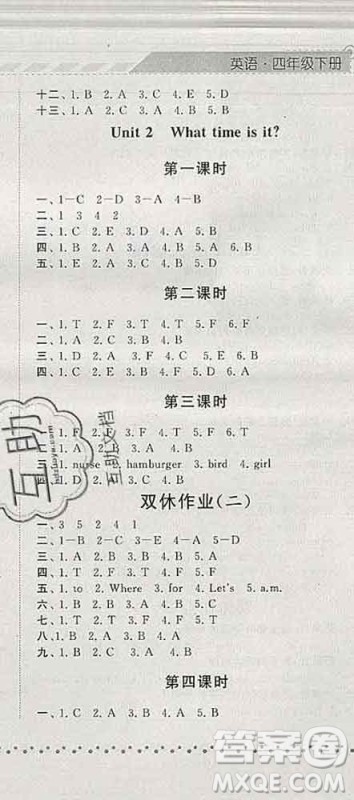 英语·四年级下册
十二、1. B 2. A 3. C 4. E 5. D
十三、1. A 2. C 3. C 4. B 5. B
Unit 2 What time is it?
第一课时
一、1-C 2-D 3-A 4-B
二、1 3 4 2
三、1. C 2. E 3. D 4. A 5. B
四、1. B 2. A 3. B 4. A 5. A 6. B
五、1. E 2. C 3. A 4. B 5. D
第二课时
一、1. T 2. F 3. T 4. T 5. F 6. F
二、1. D 2. A 3. B 4. C
三、1. A 2. C 3. B 4. A 5. B
第三课时
一、1. F 2. F 3. T 4. T 5. F
二、1. nurse 2. hamburger 3. bird 4. girl
双休作业(二)
一、3 5 2 4 1
二、1-B 2-C 3-D 4-A
三、1. B 2. D 3. A 4. A 5. C
四、1. T 2. T 3. F 4. F 5. F
五、1. to 2. Where 3. for 4. Let's 5. a.m.
六、1. B 2. B 3. A 4. B 5. B
七、1. F 2. T 3. F 4. T
八、1. B 2. D 3. A 4. C
九、1. B 2. B 3. A 4. B 5. A
第四课时
一、1. B 2. A 3. B 4. A 5. B
互助
互助文档
答案圈
MXQE.COM